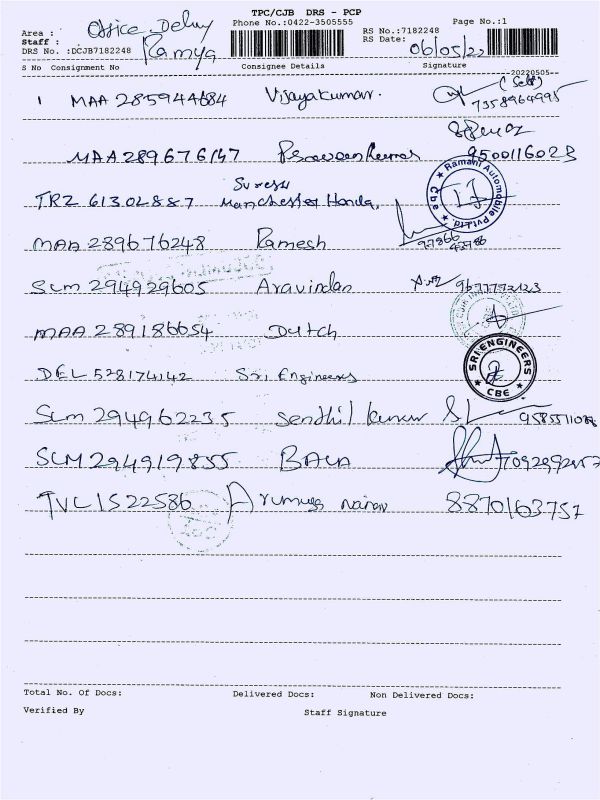 TPC/CJB DRS - PCP
Phone No.:0422-3505555
Page No.:1
Area : Office Delivy
Staff : Ramya
DRS No. :DCJB7182248
RS No.:7182248
RS Date: 06/05/22
S No Consignment No Consignee Details Signature
--20220505--
1 MAA 285944684 Vijayakumar. (Self)
7358964995
MAA 289676147 Praveenkumar 9500116023
Suresh
TRZ 61302887 Manchester Honda,
Ramani Automobile Pvt Ltd Cbe
MAA 289676248 Ramesh 97866
SLM 294929605 Aravindan
MAA 289186654 Dutch
DEL 528174142 Sri Engineers
SRI ENGINEERS CBE
SLM 294962235 Sendhil kumar
SLM 294919855 BALA
TVL 1522586 Arumuga
8870163757
Total No. Of Docs: Delivered Docs: Non Delivered Docs:
Verified By Staff Signature